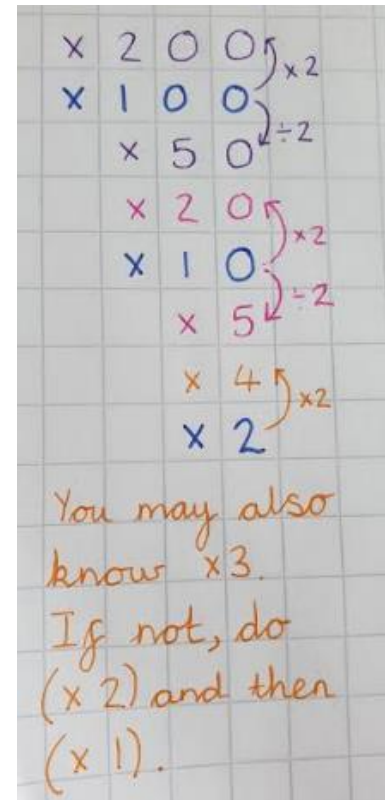 x 200
x2
x 100
÷2
x 50
x 20
x2
x 10
÷2
x 5
x 4
x2
x 2
You may also
know x3.
If not, do
(x 2) and then
(x 1).